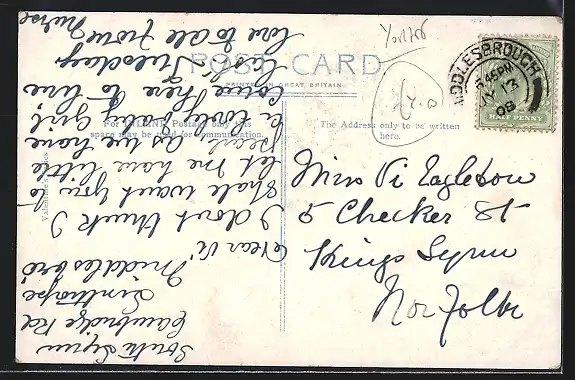 POST CARD.
PRINTED IN GREAT BRITAIN.
For INLAND Postage only this
space may be used for communication.
The Address only to be written
here.
Valentine's Series
Yorks
MIDDLESBROUGH
5.45PM
MY 13
08
HALF PENNY
Miss Vi Eaglebow
5 Checker St
Kings Lynn
Norfolk
South Lynn
Cambridge Rd
Linthorpe
Middlesbro'
Dear Vi
I dont think I
shall want you to
let me have little
pearl as we have
a lovely girl
come here to live
Tuesday
love to all from
Nurse